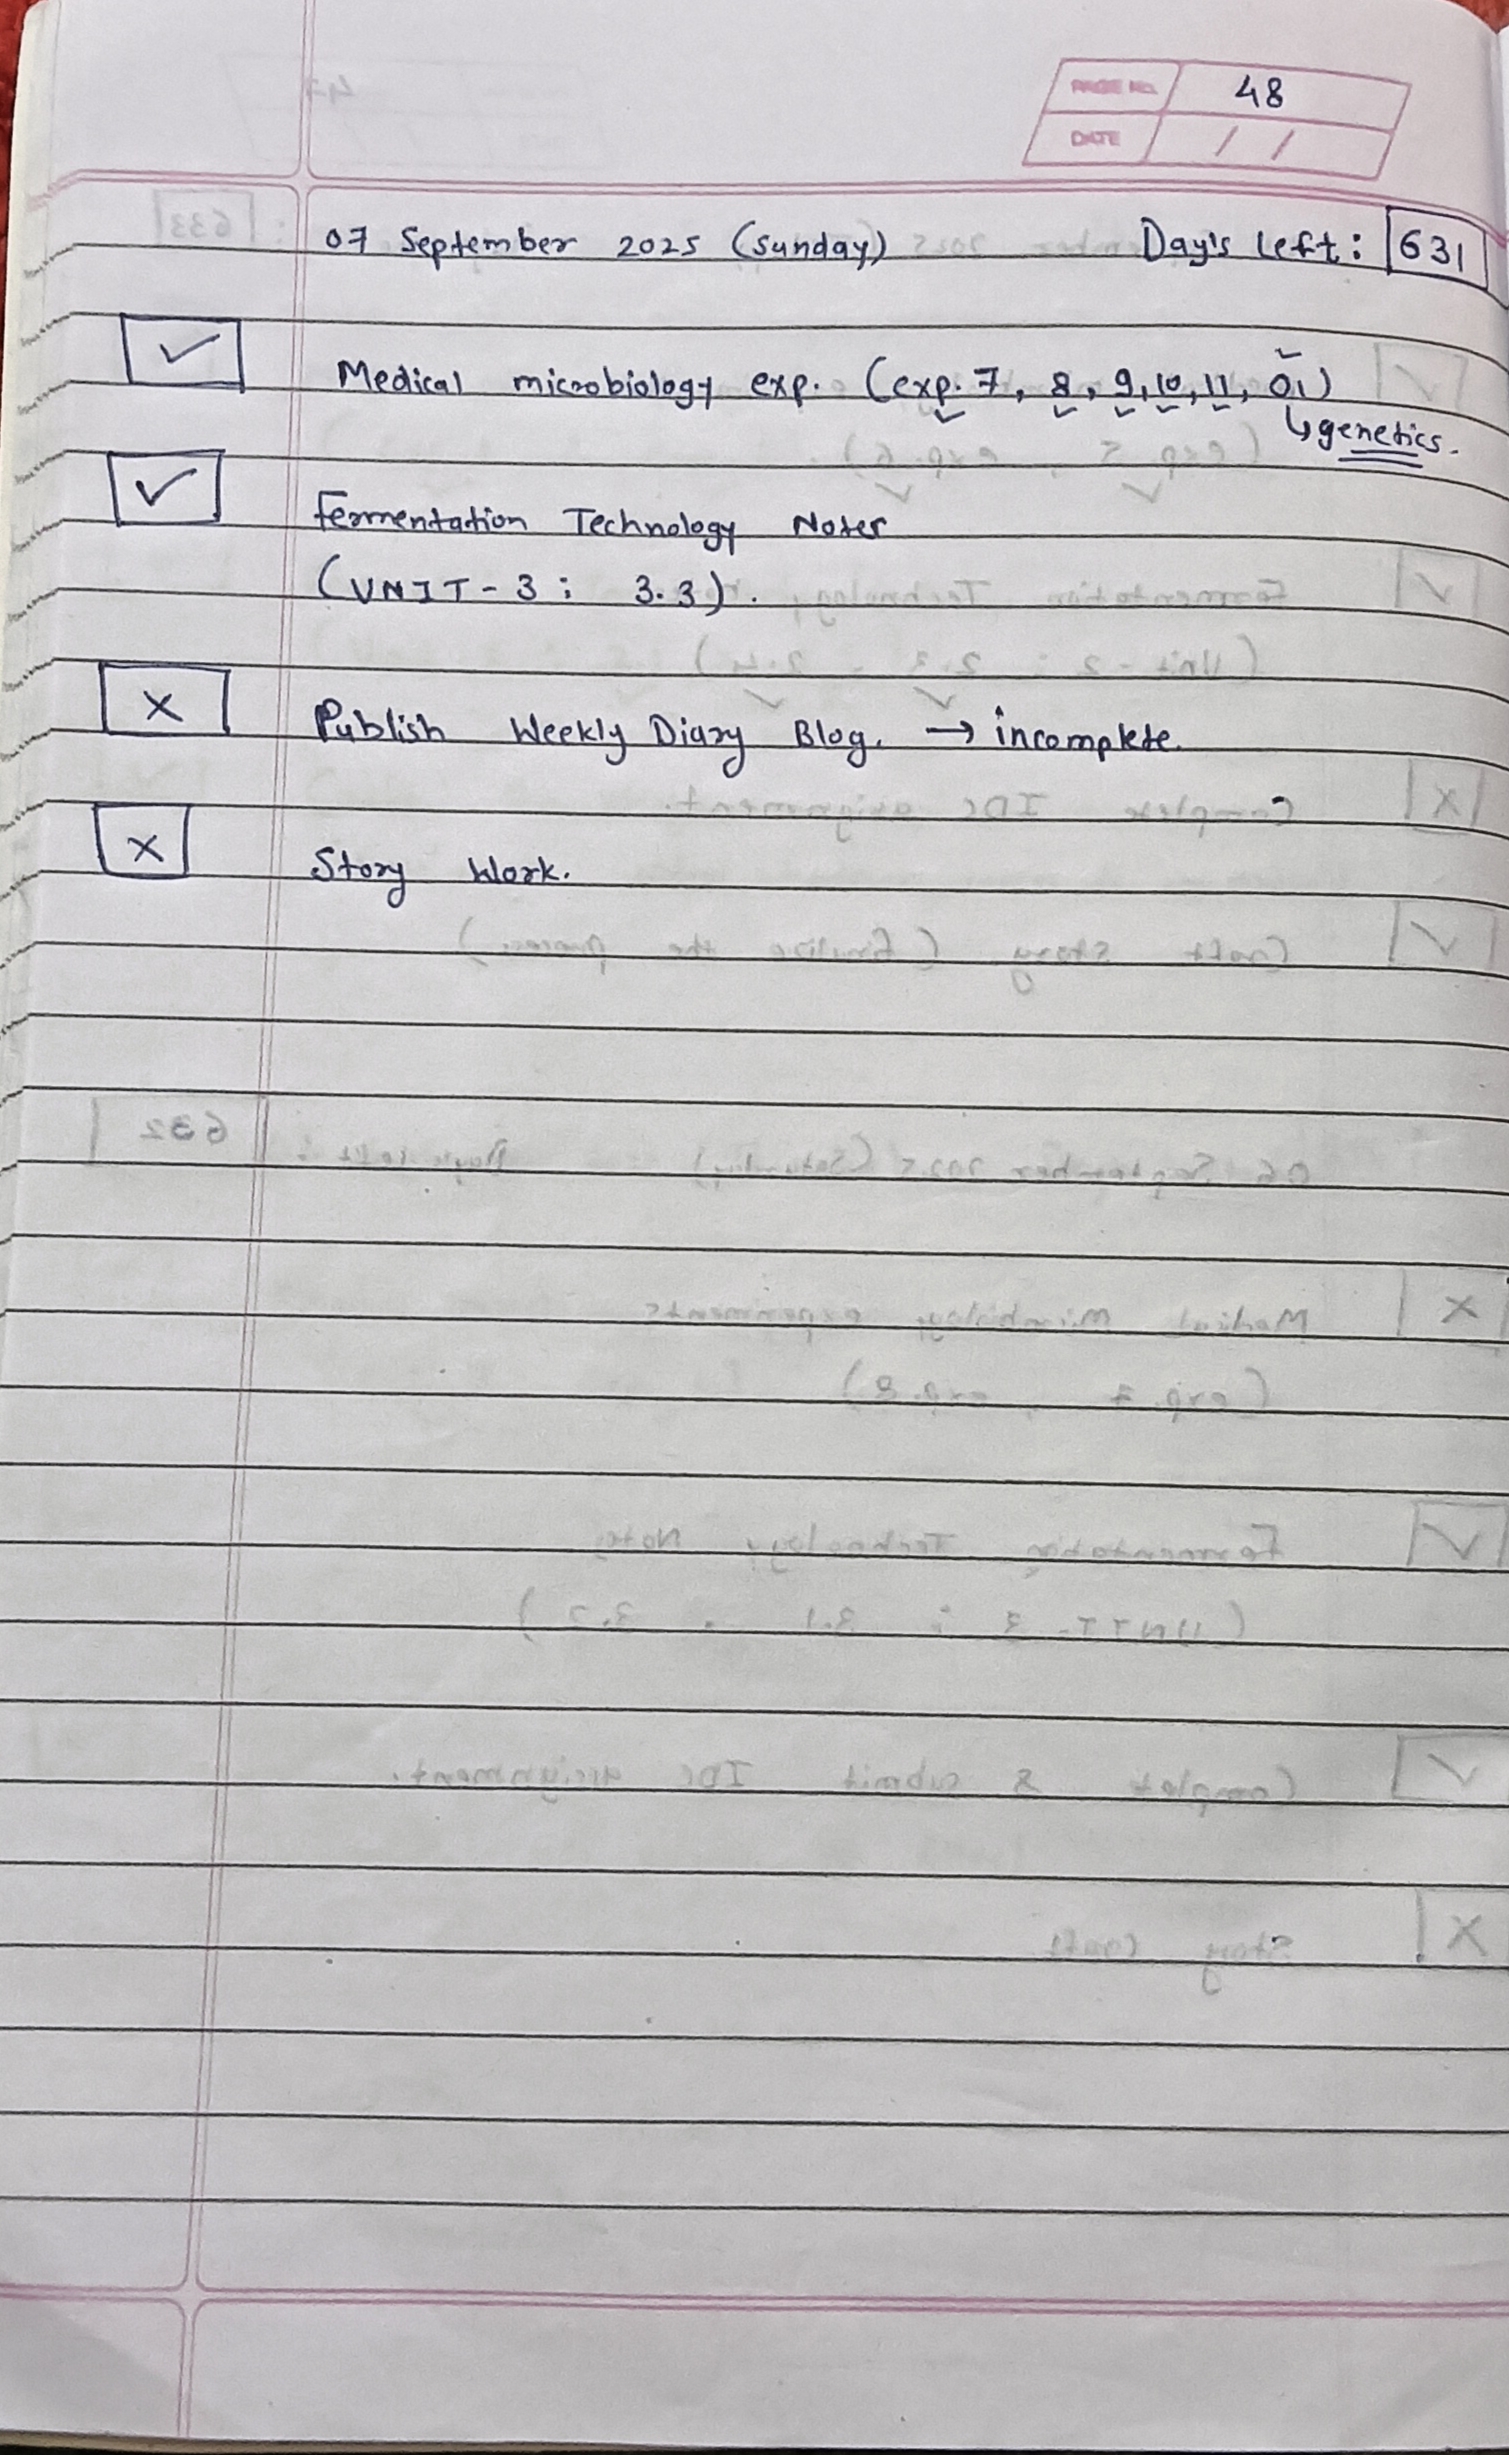 PAGE NO. 48
DATE / /
07 September 2025 (Sunday) Day's left: 631
✓ Medical microbiology exp. (exp. 7, 8, 9, 10, 11, 01)
↳ genetics.
✓ Fermentation Technology Notes
(UNIT-3: 3.3).
x Publish Weekly Diary Blog. → incomplete.
x Story Work.